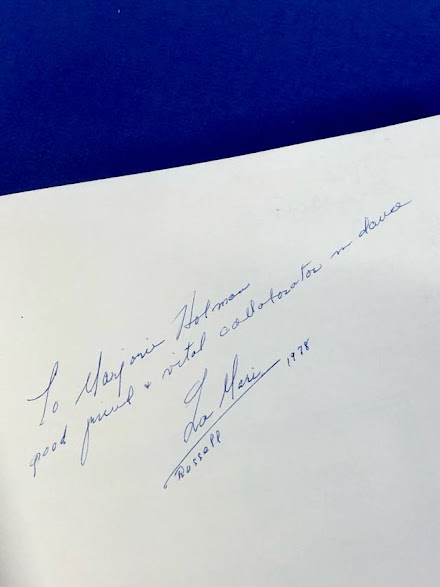 To Marjorie Holman
good friend & vital collaborator in dance
La Meri 1978
Russell